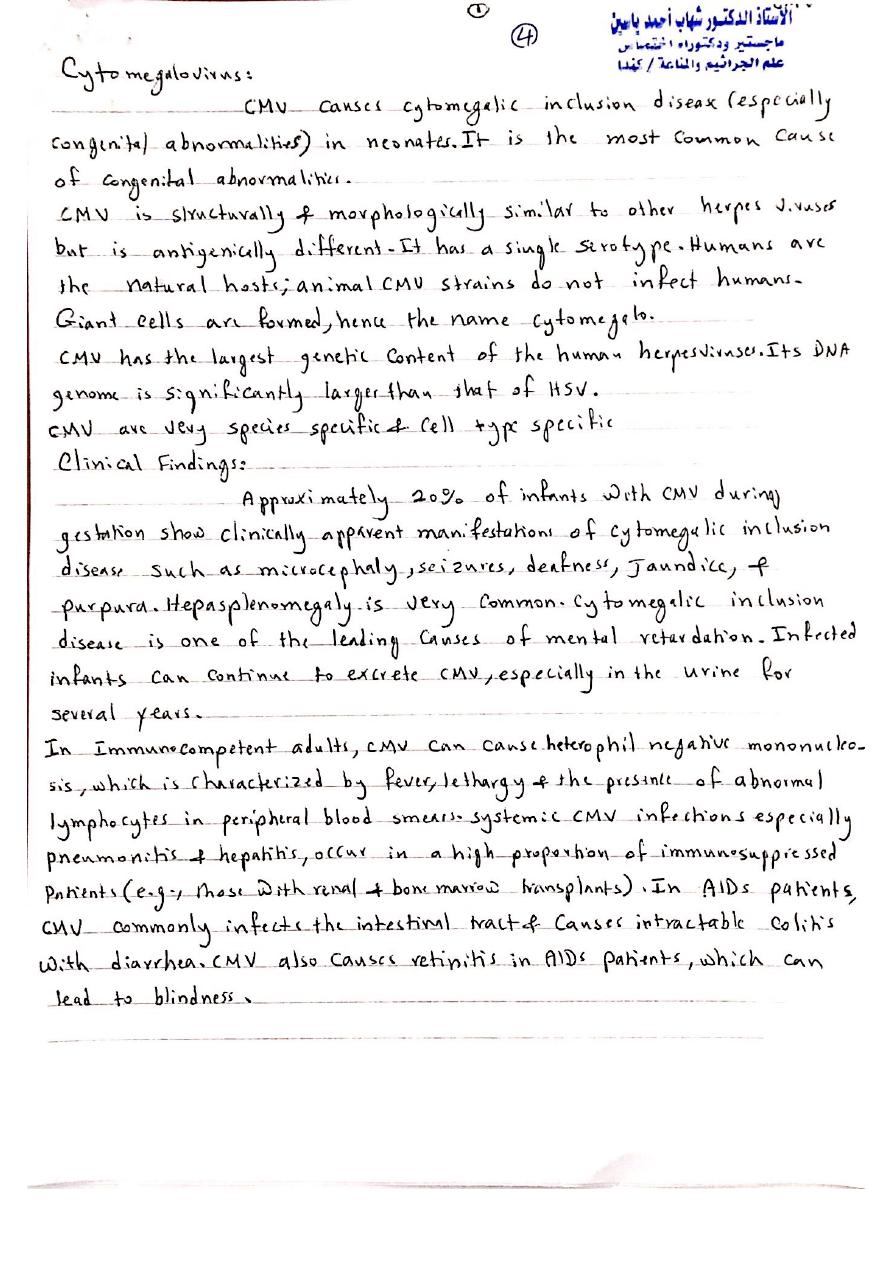 ①
④
الأستاذ الدكتور شهاب أحمد ياسين
ماجستير ودكتوراه اختصاص
علم الجراثيم والمناعة / كندا
Cytomegalovirus:
CMV causes cytomegalic inclusion disease (especially
congenital abnormalities) in neonates. It is the most common cause
of congenital abnormalities.
CMV is structurally & morphologically similar to other herpes viruses
but is antigenically different. It has a single serotype. Humans are
the natural hosts; animal CMV strains do not infect humans.
Giant cells are formed, hence the name cytomegalo.
CMV has the largest genetic content of the human herpesviruses. Its DNA
genome is significantly larger than that of HSV.
CMV are very species specific & cell type specific
Clinical Findings:
Approximately 20% of infants with CMV during
gestation show clinically apparent manifestations of cytomegalic inclusion
disease such as microcephaly, seizures, deafness, Jaundice, &
purpura. Hepasplenomegaly is very common. Cytomegalic inclusion
disease is one of the leading causes of mental retardation. Infected
infants can continue to excrete CMV, especially in the urine for
several years.
In Immunocompetent adults, CMV can cause heterophil negative mononucleo-
sis, which is characterized by fever, lethargy & the presence of abnormal
lymphocytes in peripheral blood smears. systemic CMV infections especially
pneumonitis & hepatitis, occur in a high proportion of immunosuppressed
patients (e.g., those with renal & bone marrow transplants). In AIDs patients,
CMV commonly infects the intestinal tract & causes intractable colitis
with diarrhea. CMV also causes retinitis in AIDs patients, which can
lead to blindness.